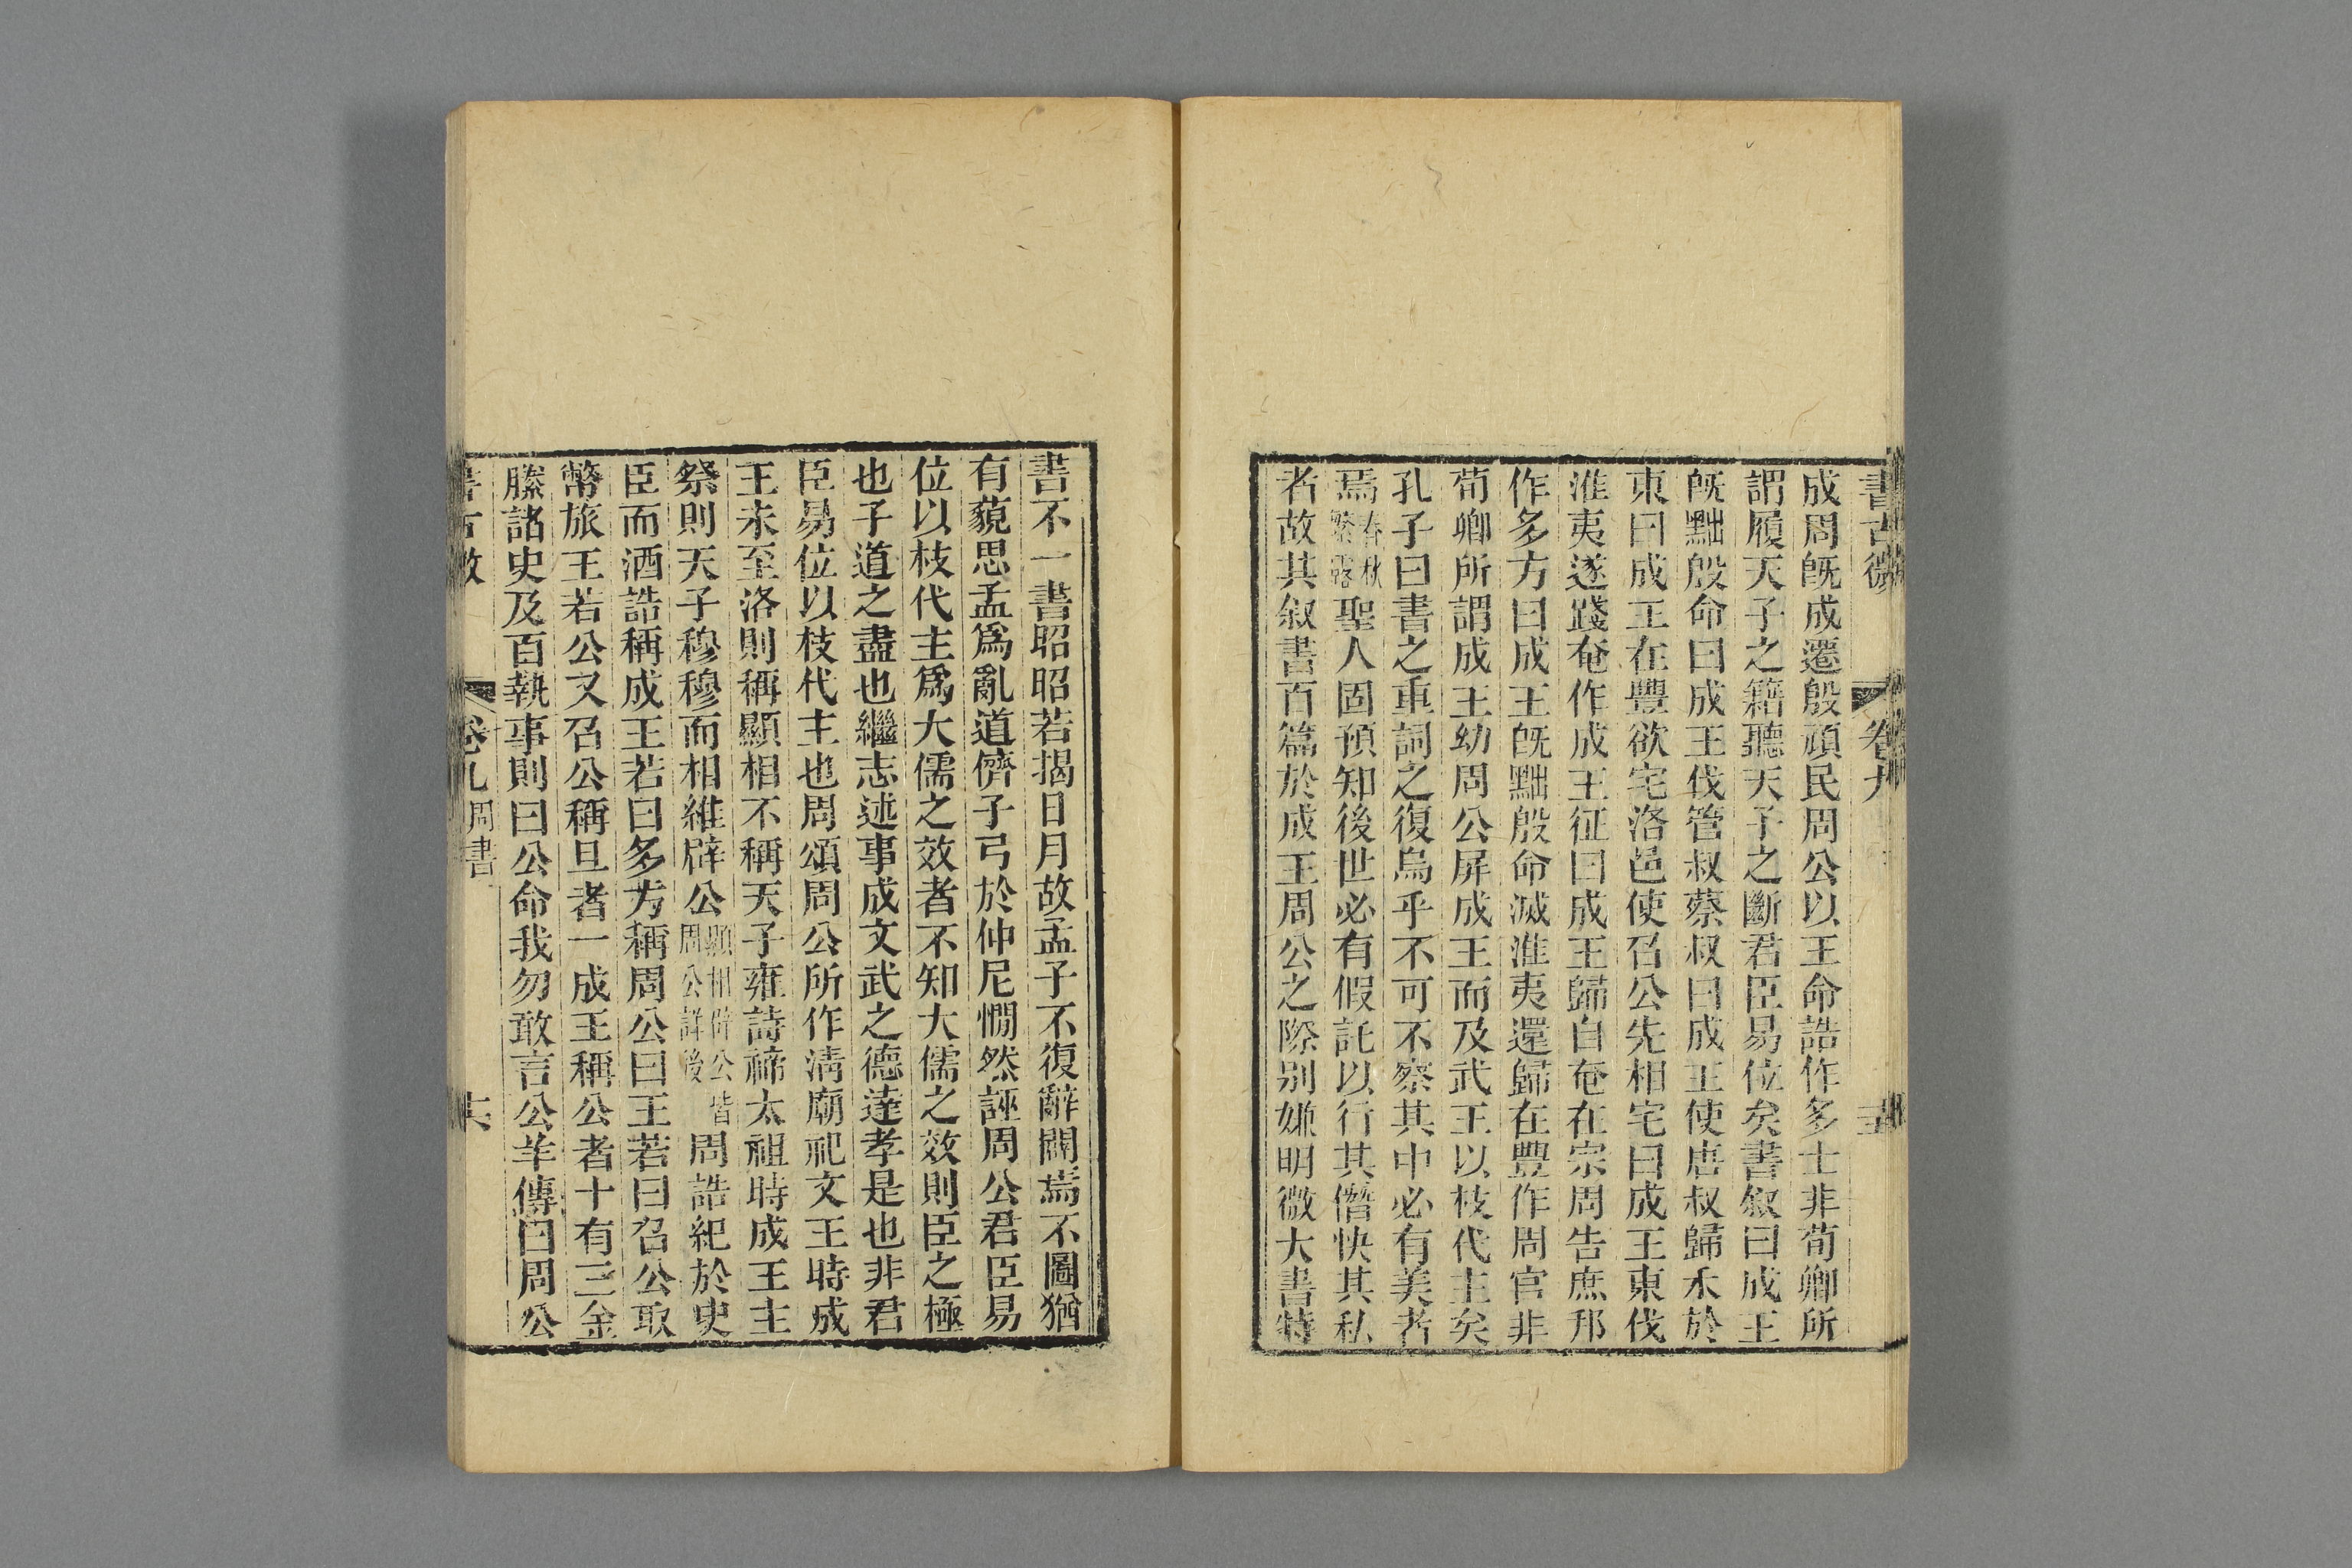 書古微 卷九
成周旣成遷殷頑民周公以王命誥作多士非荀卿所
謂履天子之籍聽天子之斷君臣易位矣書敘曰成王
旣黜殷命曰成王伐管叔蔡叔曰成王使唐叔歸禾於
東曰成王在豐欲宅洛邑使召公先相宅曰成王東伐
淮夷遂踐奄作成王征曰成王歸自奄在宗周告庶邦
作多方曰成王旣黜殷命滅淮夷還歸在豐作周官非
荀卿所謂成王幼周公屏成王而及武王以枝代主矣
孔子曰書之重詞之復烏乎不可不察其中必有美者
焉春秋繁露聖人固預知後世必有假託以行其僭快其私
者故其敘書百篇於成王周公之際别嫌明微大書特
書不一書昭昭若揭日月故孟子不復辭闢焉不圖猶
有藐思孟爲亂道儕子弓於仲尼憪然誣周公君臣易
位以枝代主爲大儒之效者不知大儒之效則臣之極
也子道之盡也繼志述事成文武之德達孝是也非君
臣易位以枝代主也周頌周公所作淸廟祀文王時成
王未至洛則稱顯相不稱天子雍詩禘太祖時成王主
祭則天子穆穆而相維辟公顯相辟公皆周公詳後周誥紀於史
臣而酒誥稱成王若曰多方稱周公曰王若曰召公取
幣旅王若公又召公稱旦者一成王稱公者十有三金
縢諸史及百執事則曰公命我勿敢言公羊傳曰周公
書古微 卷九周書 十六